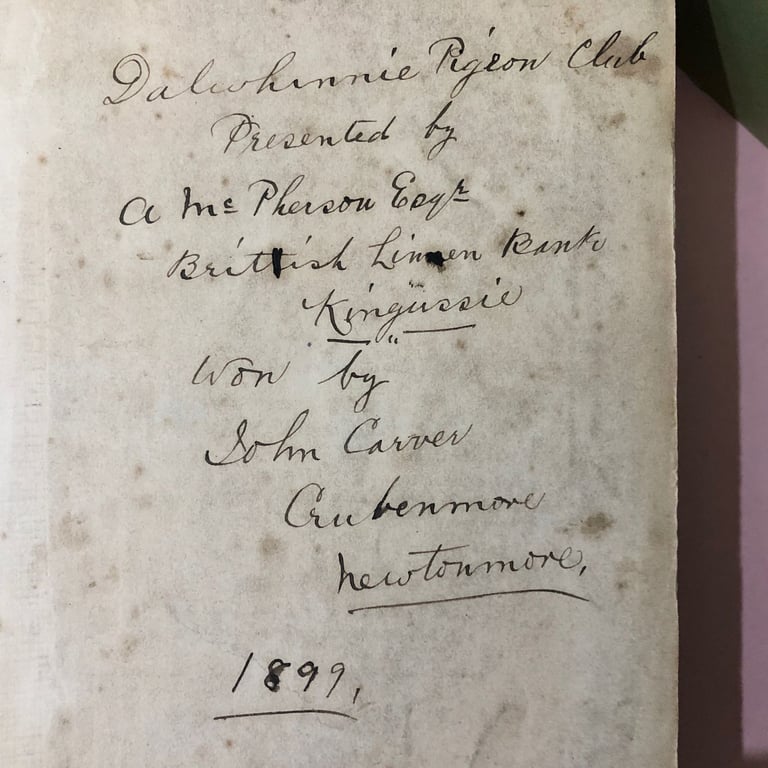 Dalwhinnie Pigeon Club
Presented by
A Mc Pherson Esqr
Brittish Linnen Bank
Kingussie
Won by
John Carver
Crubenmore
Newtonmore,
1899,